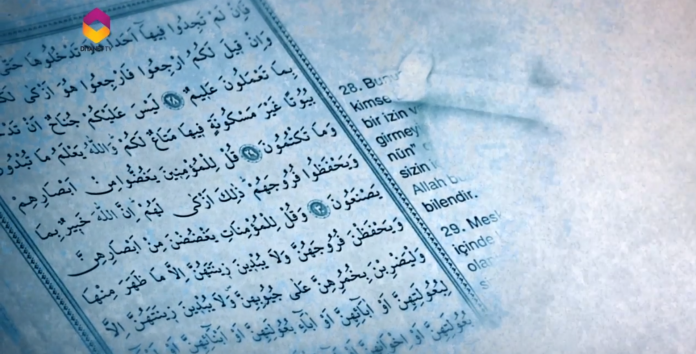 فَاِنْ لَمْ تَجِدُوا فِيهَا اَحَدًا تَدْخُلُوهَا حَتّٰى
وَاِنْ قِيلَ لَكُمُ ارْجِعُوا فَارْجِعُوا هُوَ اَزْكٰى
بِمَا تَعْمَلُونَ عَلِيمٌ ﴿٢٨﴾ لَيْسَ عَلَيْكُمْ جُنَاحٌ اَنْ
بُيُوتًا غَيْرَ مَسْكُونَةٍ فِيهَا مَتَاعٌ لَكُمْ وَاللّٰهُ يَعْلَمُ مَا تُبْدُونَ
وَمَا تَكْتُمُونَ ﴿٢٩﴾ قُلْ لِلْمُؤْمِنِينَ يَغُضُّوا مِنْ اَبْصَارِهِمْ
وَيَحْفَظُوا فُرُوجَهُمْ ذٰلِكَ اَزْكٰى لَهُمْ اِنَّ اللّٰهَ خَبِيرٌ بِمَا
يَصْنَعُونَ ﴿٣٠﴾ وَقُلْ لِلْمُؤْمِنَاتِ يَغْضُضْنَ مِنْ اَبْصَارِهِنَّ
وَيَحْفَظْنَ فُرُوجَهُنَّ وَلَا يُبْدِينَ زِينَتَهُنَّ اِلَّا مَا ظَهَرَ مِنْهَا
وَلْيَضْرِبْنَ بِخُمُرِهِنَّ عَلٰى جُيُوبِهِنَّ وَلَا يُبْدِينَ زِينَتَهُنَّ اِلَّا
لِبُعُولَتِهِنَّ اَوْ اٰبَائِهِنَّ اَوْ اٰبَاءِ بُعُولَتِهِنَّ اَوْ اَبْنَائِهِنَّ اَوْ
بُعُولَتِهِنَّ اَوْ اِخْوَانِهِنَّ اَوْ
28.
kimse
bir izin
girmey
nün"
sizin
Allah
bilendir.
29.
içinde